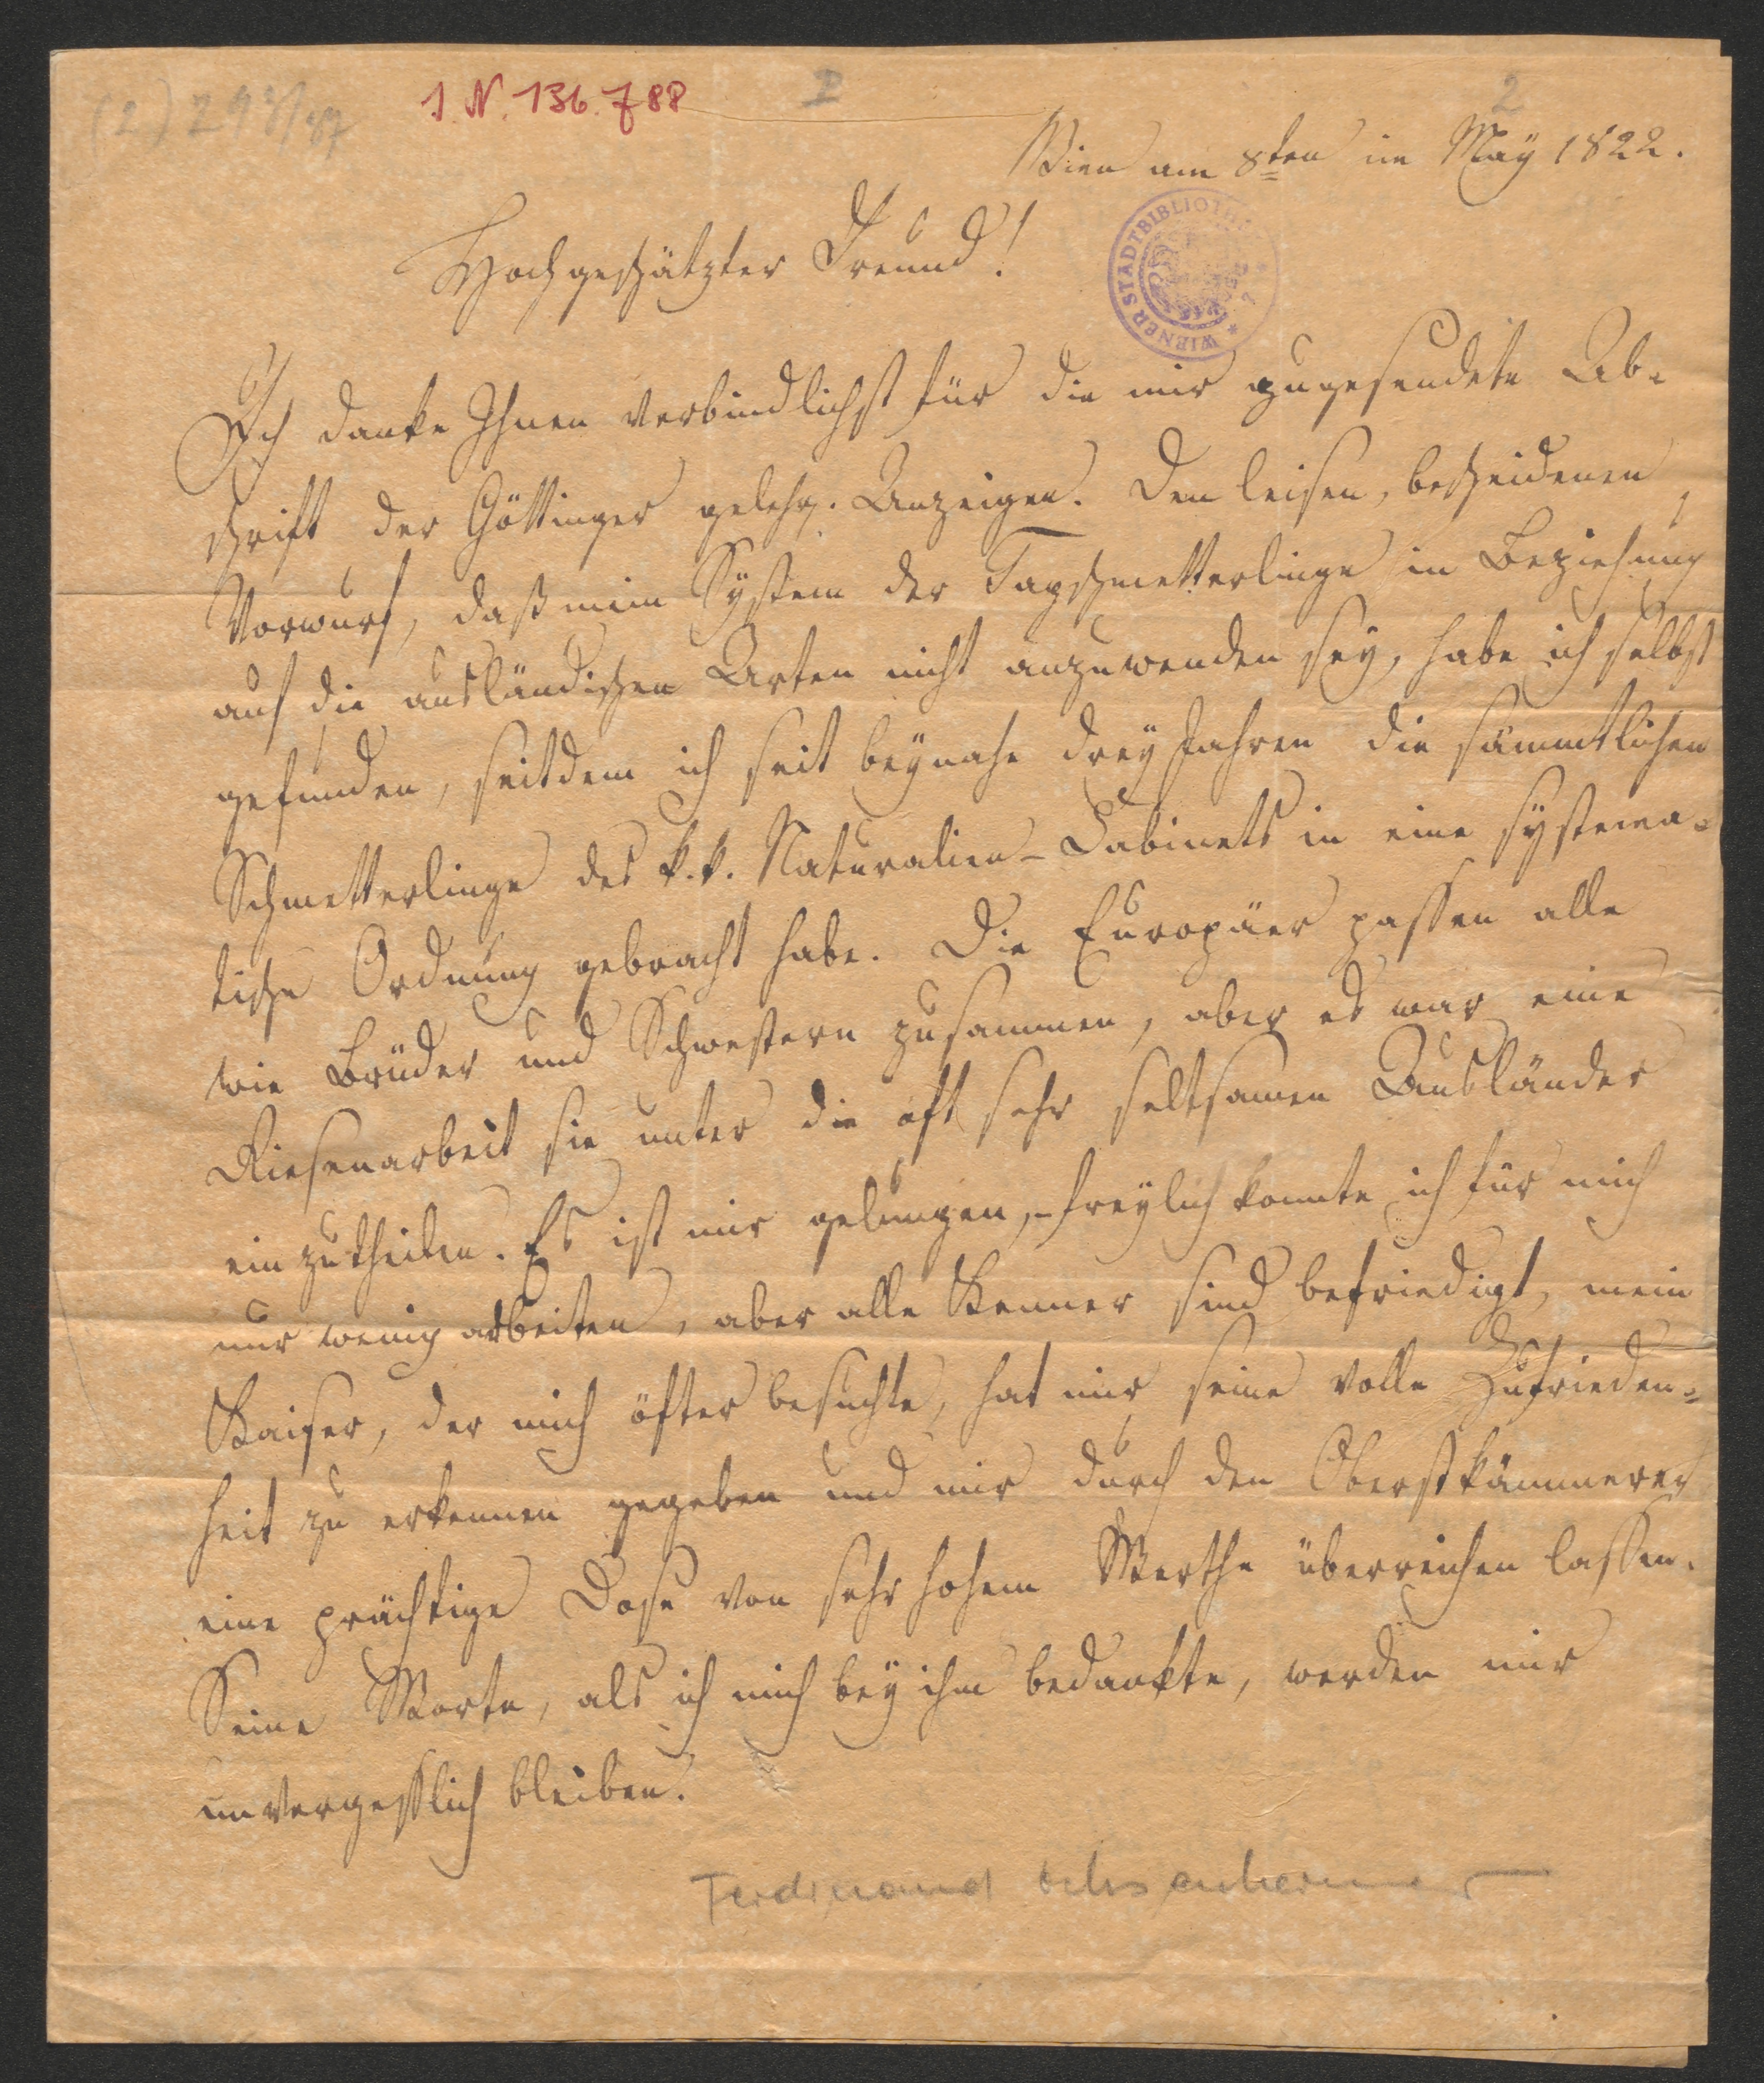 (2) 298/87
I. N. 136.788
I
2
Wien am 8ten im Maÿ 1822.
WIENER STADTBIBLIOTHEK
Hochgeschätzter Freund!
Ich danke Ihnen verbindlichst für die mir zugesendete Ab-
schrift der Göttinger gelehr. Anzeigen. Den leisen, bescheidenen
Vorwurf, daß mein Sÿstem der Tagschmetterlinge in Beziehung
auf die ausländischen Arten nicht anzuwenden seÿ, habe ich selbst
gefunden, seitdem ich seit beÿnahe dreÿ Jahren die sämmtlichen
Schmetterlinge des k. k. Naturalien-Cabinets in eine sÿstema-
tische Ordnung gebracht habe. Die Europäer passen alle
wie Brüder und Schwestern zusammen, aber es war eine
Riesenarbeit sie unter die oft sehr seltsamen Ausländer
einzutheilen. Es ist mir gelungen, - freÿlich konnte ich für mich
nur wenig arbeiten, aber alle Kenner sind befriedigt, mein
Kaiser, der mich öfter besuchte, hat mir seine volle Zufrieden-
heit zu erkennen gegeben und mir durch den Oberstkämmerer
eine prächtige Dose von sehr hohem Werthe überreichen lassen.
Seine Worte, als ich mich beÿ ihm bedankte, werden mir
unvergesslich bleiben.
Ferdinand Ochsenheimer